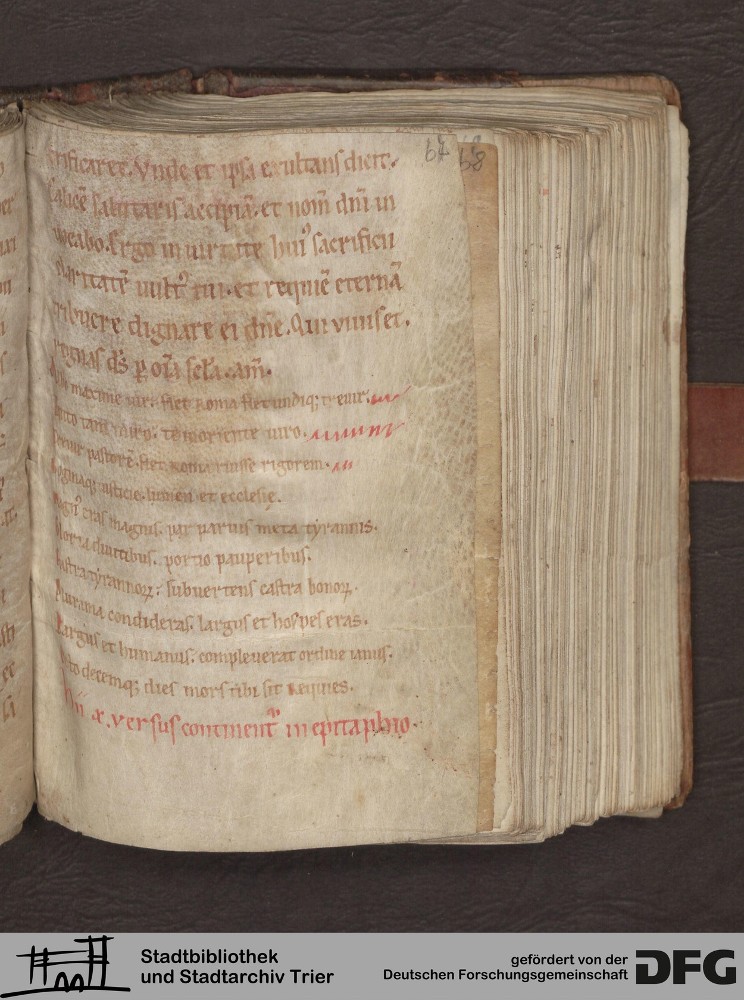 67 68
crificaret. Vnde et ipsa exultans dicit.
Calicē salutaris accipiā. et nom̄ dn̄i in
uocabo. Ergo in uirtute hui' sacrificii
claritatē uult' tui. et requiē eternā
tribuere dignare ei dn̄e. Qui uiuis et
regnas ds̄ ꝑ om̄a scl̄a. am̄.
maxime uir. flet Roma flet undiq;
te moriente uiro.
pastorē. flet Roma rigorem.
iusticie. lumen et ecclesię.
eras magnus. par paruis meta tyrannis.
diuitibus. portio pauperibus.
tyrannoꝝ: subuertens castra bonoꝝ.
condideras. largus et hospes eras.
Largus et humanus. compleuerat ordine ianus.
decemq; dies mors tibi sit requies.
versus continent' in epitaphio.
Stadtbibliothek
und Stadtarchiv Trier
gefördert von der
Deutschen Forschungsgemeinschaft
DFG